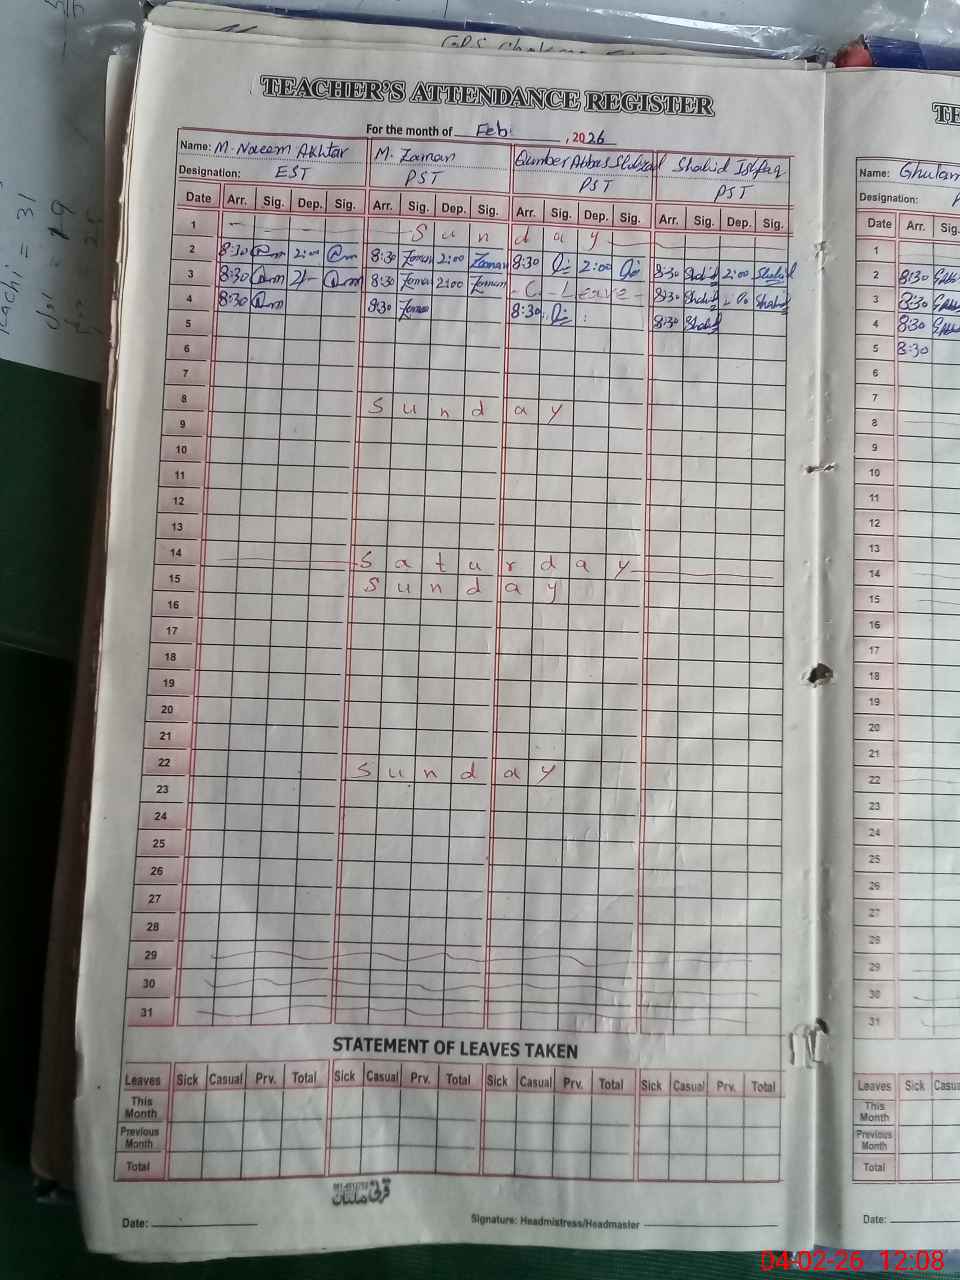 TEACHER'S ATTENDANCE REGISTER
For the month of Feb. , 2026
Name: M. Naeem Akhtar M. Zaman Qumber Abbas Shahid Ishfaq
Designation: EST PST PST PST
Date Arr. Sig. Dep. Sig. Arr. Sig. Dep. Sig. Arr. Sig. Dep. Sig. Arr. Sig. Dep. Sig.
1 Sunday
2 8:30 2:00 8:30 Zaman 2:00 Zaman 8:30 2:00 8:30 Shahid 2:00 Shahid
3 8:30 8:30 Zaman 2:00 Zaman C. Leave 8:30 Shahid Shahid
4 8:30 8:30 Zaman 8:30 8:30 Shahid
5
6
7
8 Sunday
9
10
11
12
13
14 Saturday
15 Sunday
16
17
18
19
20
21
22 Sunday
23
24
25
26
27
28
29
30
31
STATEMENT OF LEAVES TAKEN
Leaves Sick Casual Prv. Total Sick Casual Prv. Total Sick Casual Prv. Total Sick Casual Prv. Total
This
Month
Previous
Month
Total
Date:
Signature: Headmistress/Headmaster
TE
Name: Ghulam
Designation:
Date Arr. Sig.
1
2 8:30
3 8:30
4 8:30
5 8:30
6
7
8
9
10
11
12
13
14
15
16
17
18
19
20
21
22
23
24
25
26
27
28
29
30
31
Leaves Sick Casu
This
Month
Previous
Month
Total
Date:
04-02-26 12:08